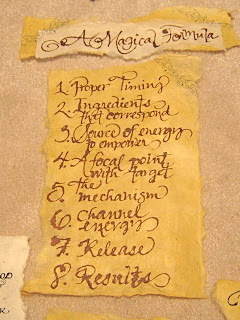 A Magical Formula
1. Proper Timing
2. Ingredients
that correspond
3. Source of energy
to empower
4. A focal point
with target
5. the
mechanism
6. Channel
energy
7. Release
8. Results